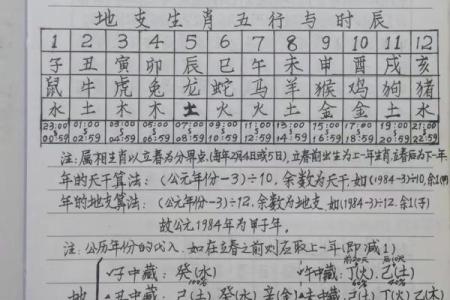 地支生肖五行与时辰
1 2 3 4 5 6 7 8 9 10 11 12
子 丑 寅 卯 辰 巳 午 未 申 酉 戌 亥
鼠 牛 虎 兔 龙 蛇 马 羊 猴 鸡 狗 猪
水 土 木 木 土 火 火 土 金 金 土 水
23:00 01:00 03:00 05:00 07:00 09:00 11:00 13:00 15:00 17:00 19:00 21:00
00:59 02:59 04:59 06:59 08:59 10:59 12:59 14:59 16:59 18:59 20:59 22:59
注:属相生肖以立春为分界点,(每年2月4日或5日),立春前出生为上一年生肖,立春后为下一年
年的天干算法:(公元年份-3)÷10,余数为天干,如(1984-3)÷10,余1(甲)
年的地支算法:(公元年份-3)÷12,余数为地支,如(1984-3)÷12,余1(子)
故公元1984年为甲子年。
注:公历年份的代入,如在立春之前则后取上一年(即减1)
子中藏:癸(水) 午中藏:丁(火)己(土)
地 丑中藏:己(土)癸(水)辛(金) 未中藏:己(土)丁(火)乙(木)